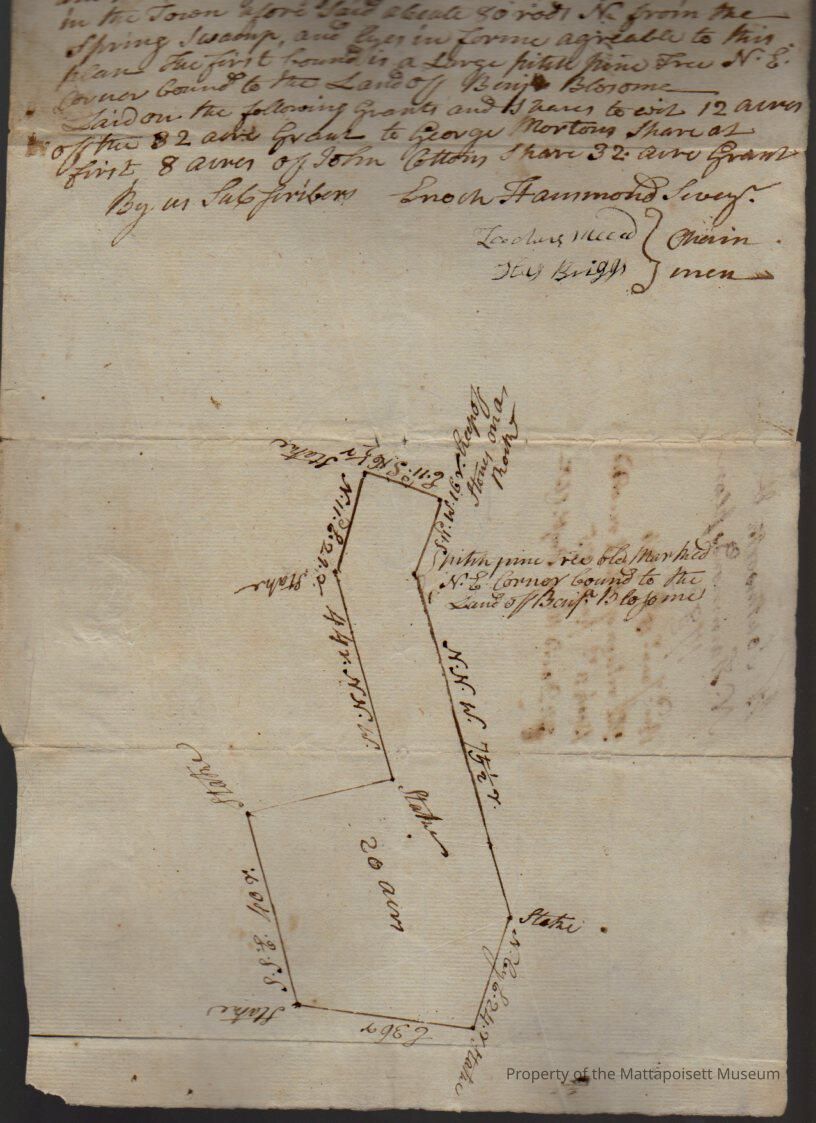 in the Town afore Said about 80 rods N. from the
Spring Swamp, and lyes in forme agreable to this
plan The first bound is a Large pitch pine Tree N. E.
Corner bound to the Land off Benjn Blosome
Laid on the following Grants and Shares to wit 12 acres
off the 32 acre Grant to George Mortons Share at
first 8 acres of John Cottons Share 32: acre Grant
By us Subscribers Enoch Hammond Sevey.r
Mead } Chain
Briggs } men
Stake
E. 11. S. 16 1/2 r
S. 11. W. 19 r. heap off
Stones on a
Rock
N. 11. E. 21. r
Stake
pitch pine Tree old Marked
N. E. Corner bound to the
Land off Benjn. Blosome
44 r. N. N. W.
N. N. W. 75 1/2 r.
Stake
Stake
20 acrs
S. S. E. 40 r.
Stake
Stake
E 36 r
24. r Stake
Property of the Mattapoisett Museum